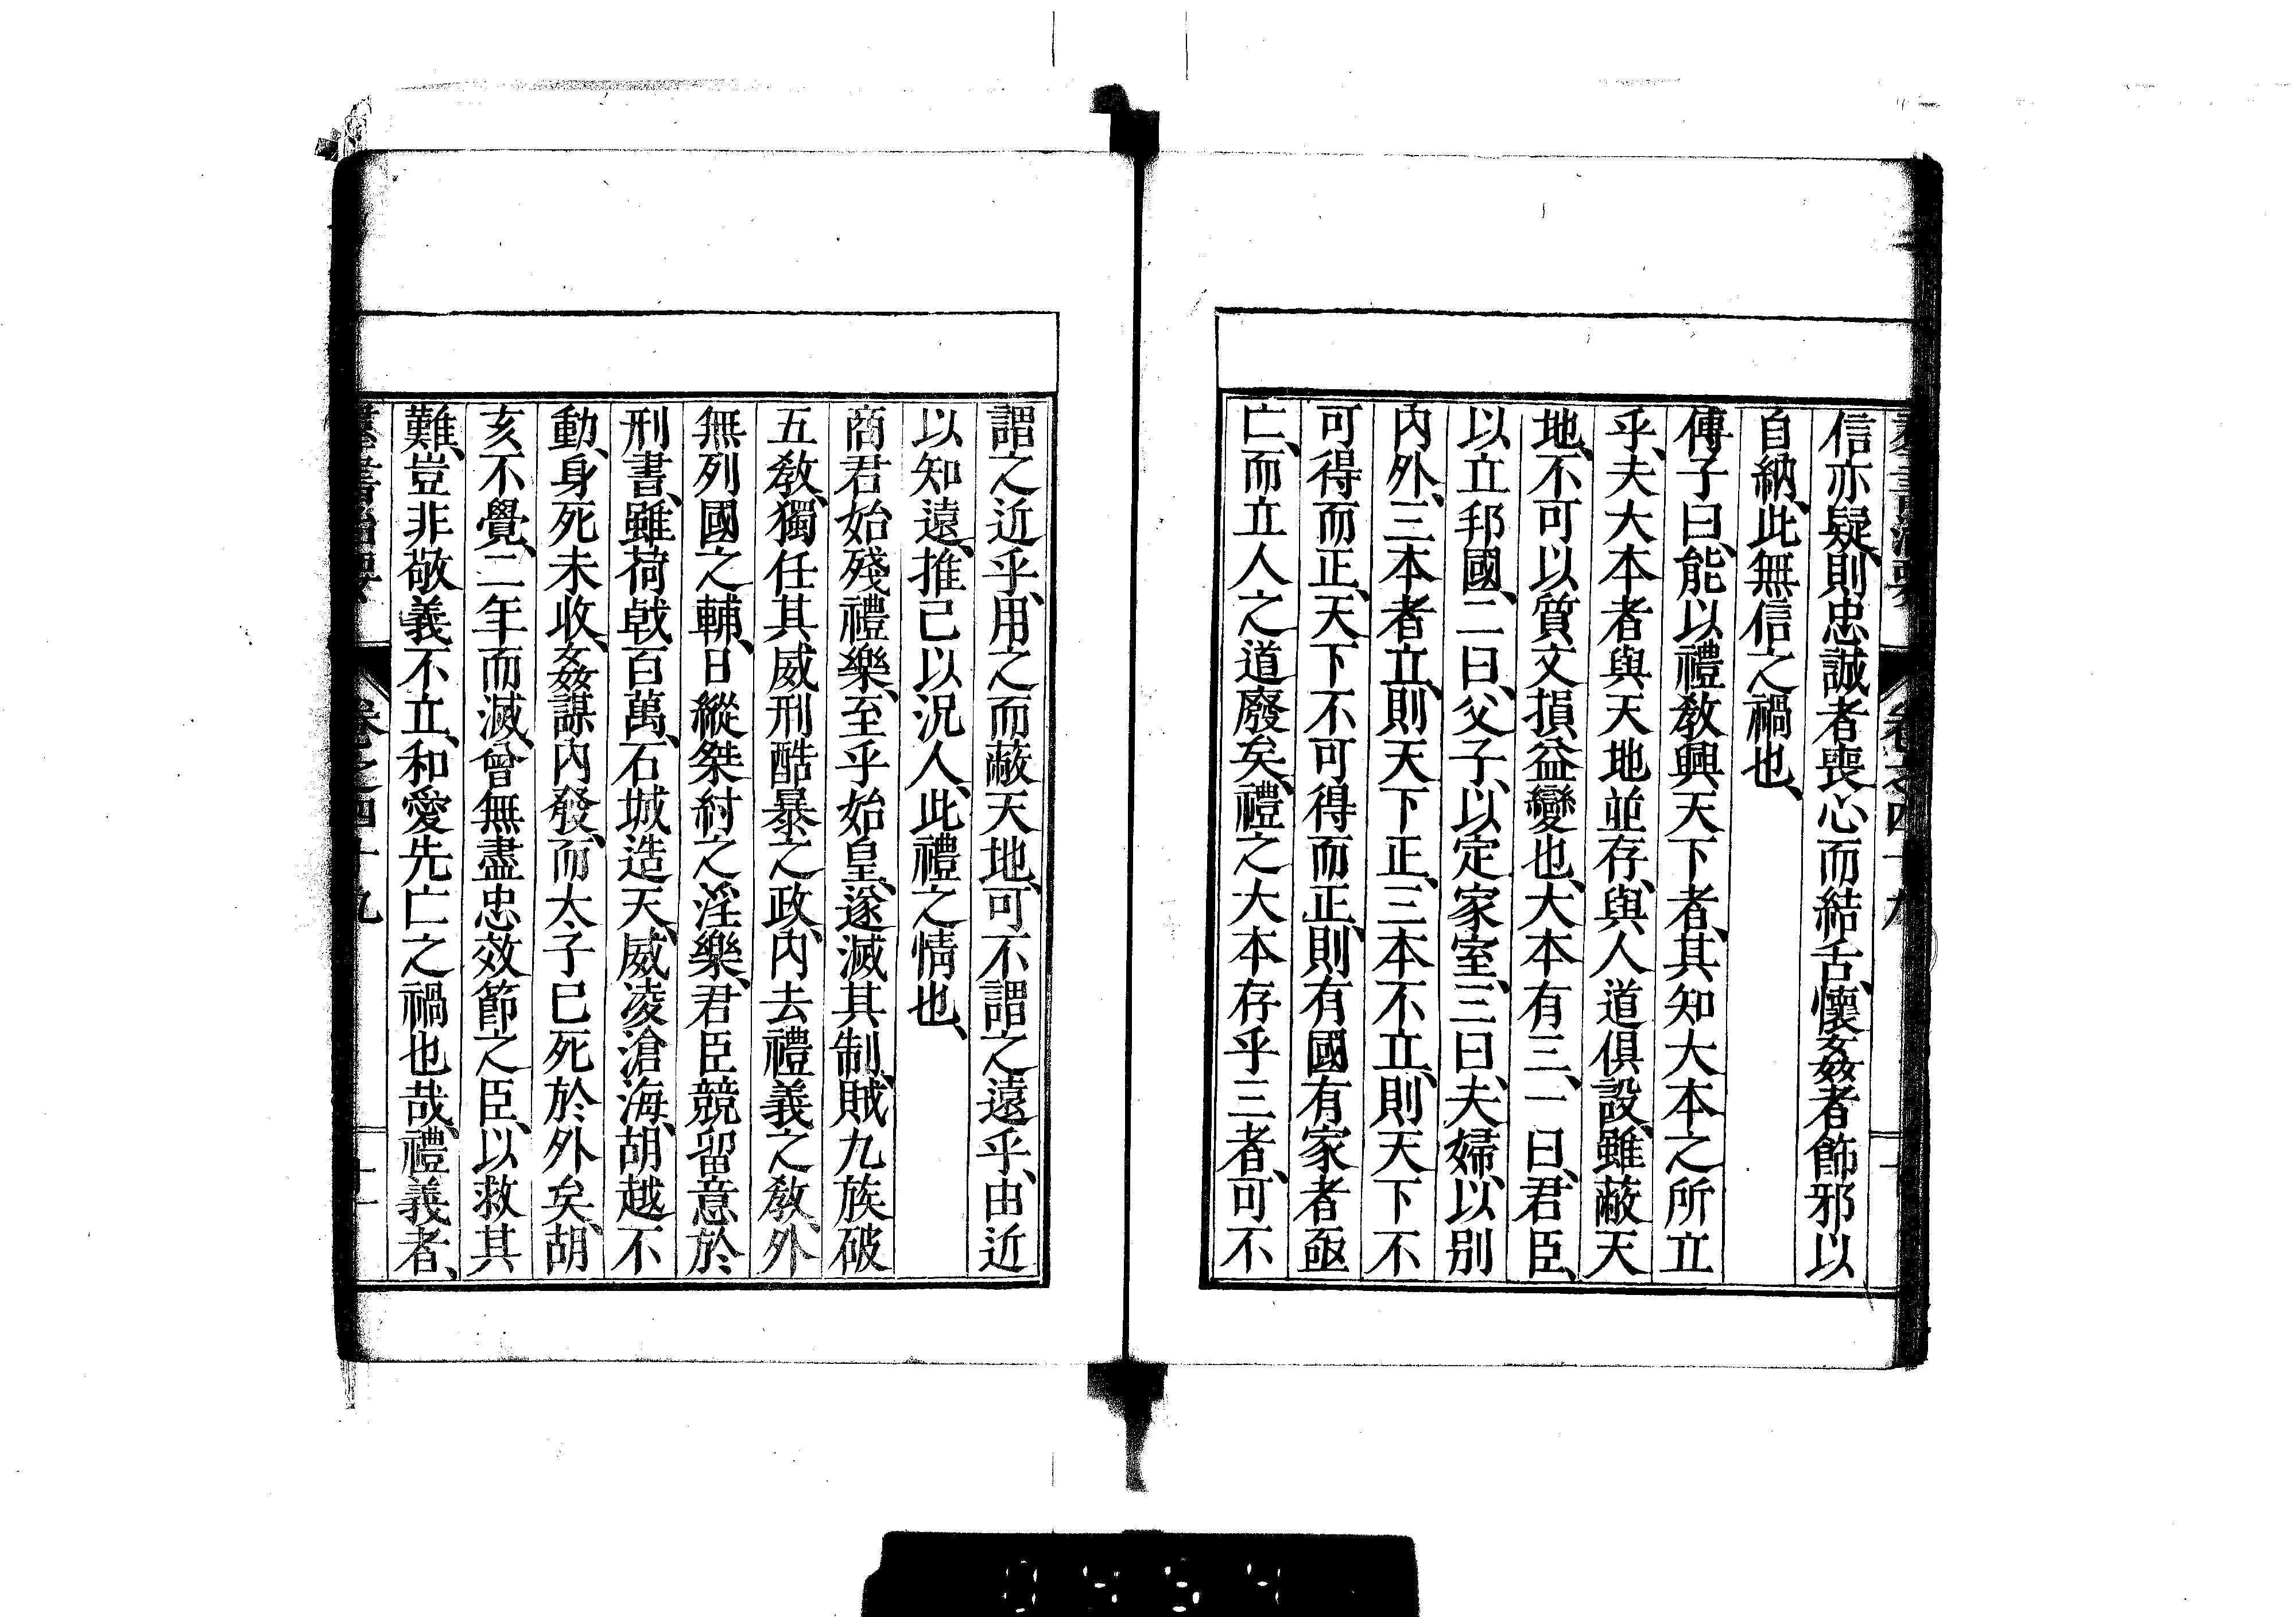 羣書治要 卷之四十九
信亦疑、則忠誠者喪心而結舌、懷姦者飾邪以
自納、此無信之禍也、
傅子曰、能以禮敎興天下者、其知大本之所立
乎、夫大本者與天地並存、與人道俱設、雖蔽天
地、不可以質文損益變也、大本有三、一曰、君臣、
以立邦國、二曰、父子、以定家室、三曰、夫婦、以別
內外、三本者立、則天下正、三本不立、則天下不
可得而正、天下不可得而正、則有國有家者亟
亡、而立人之道廢矣、禮之大本存乎三者、可不
謂之近乎、用之而蔽天地、可不謂之遠乎、由近
以知遠、推己以況人、此禮之情也、
商君始殘禮樂、至乎始皇、遂滅其制、賊九族破
五敎、獨任其威刑酷暴之政、內去禮義之敎、外
無列國之輔、日縱桀紂之淫樂、君臣競留意於
刑書、雖荷戟百萬、石城造天、威凌滄海、胡越不
動、身死未收、姦謀內發、而太子已死於外矣、胡
亥不覺、二年而滅、曾無盡忠效節之臣、以救其
難、豈非敬義不立、和愛先亡之禍也哉、禮義者、
羣書治要 卷之四十九